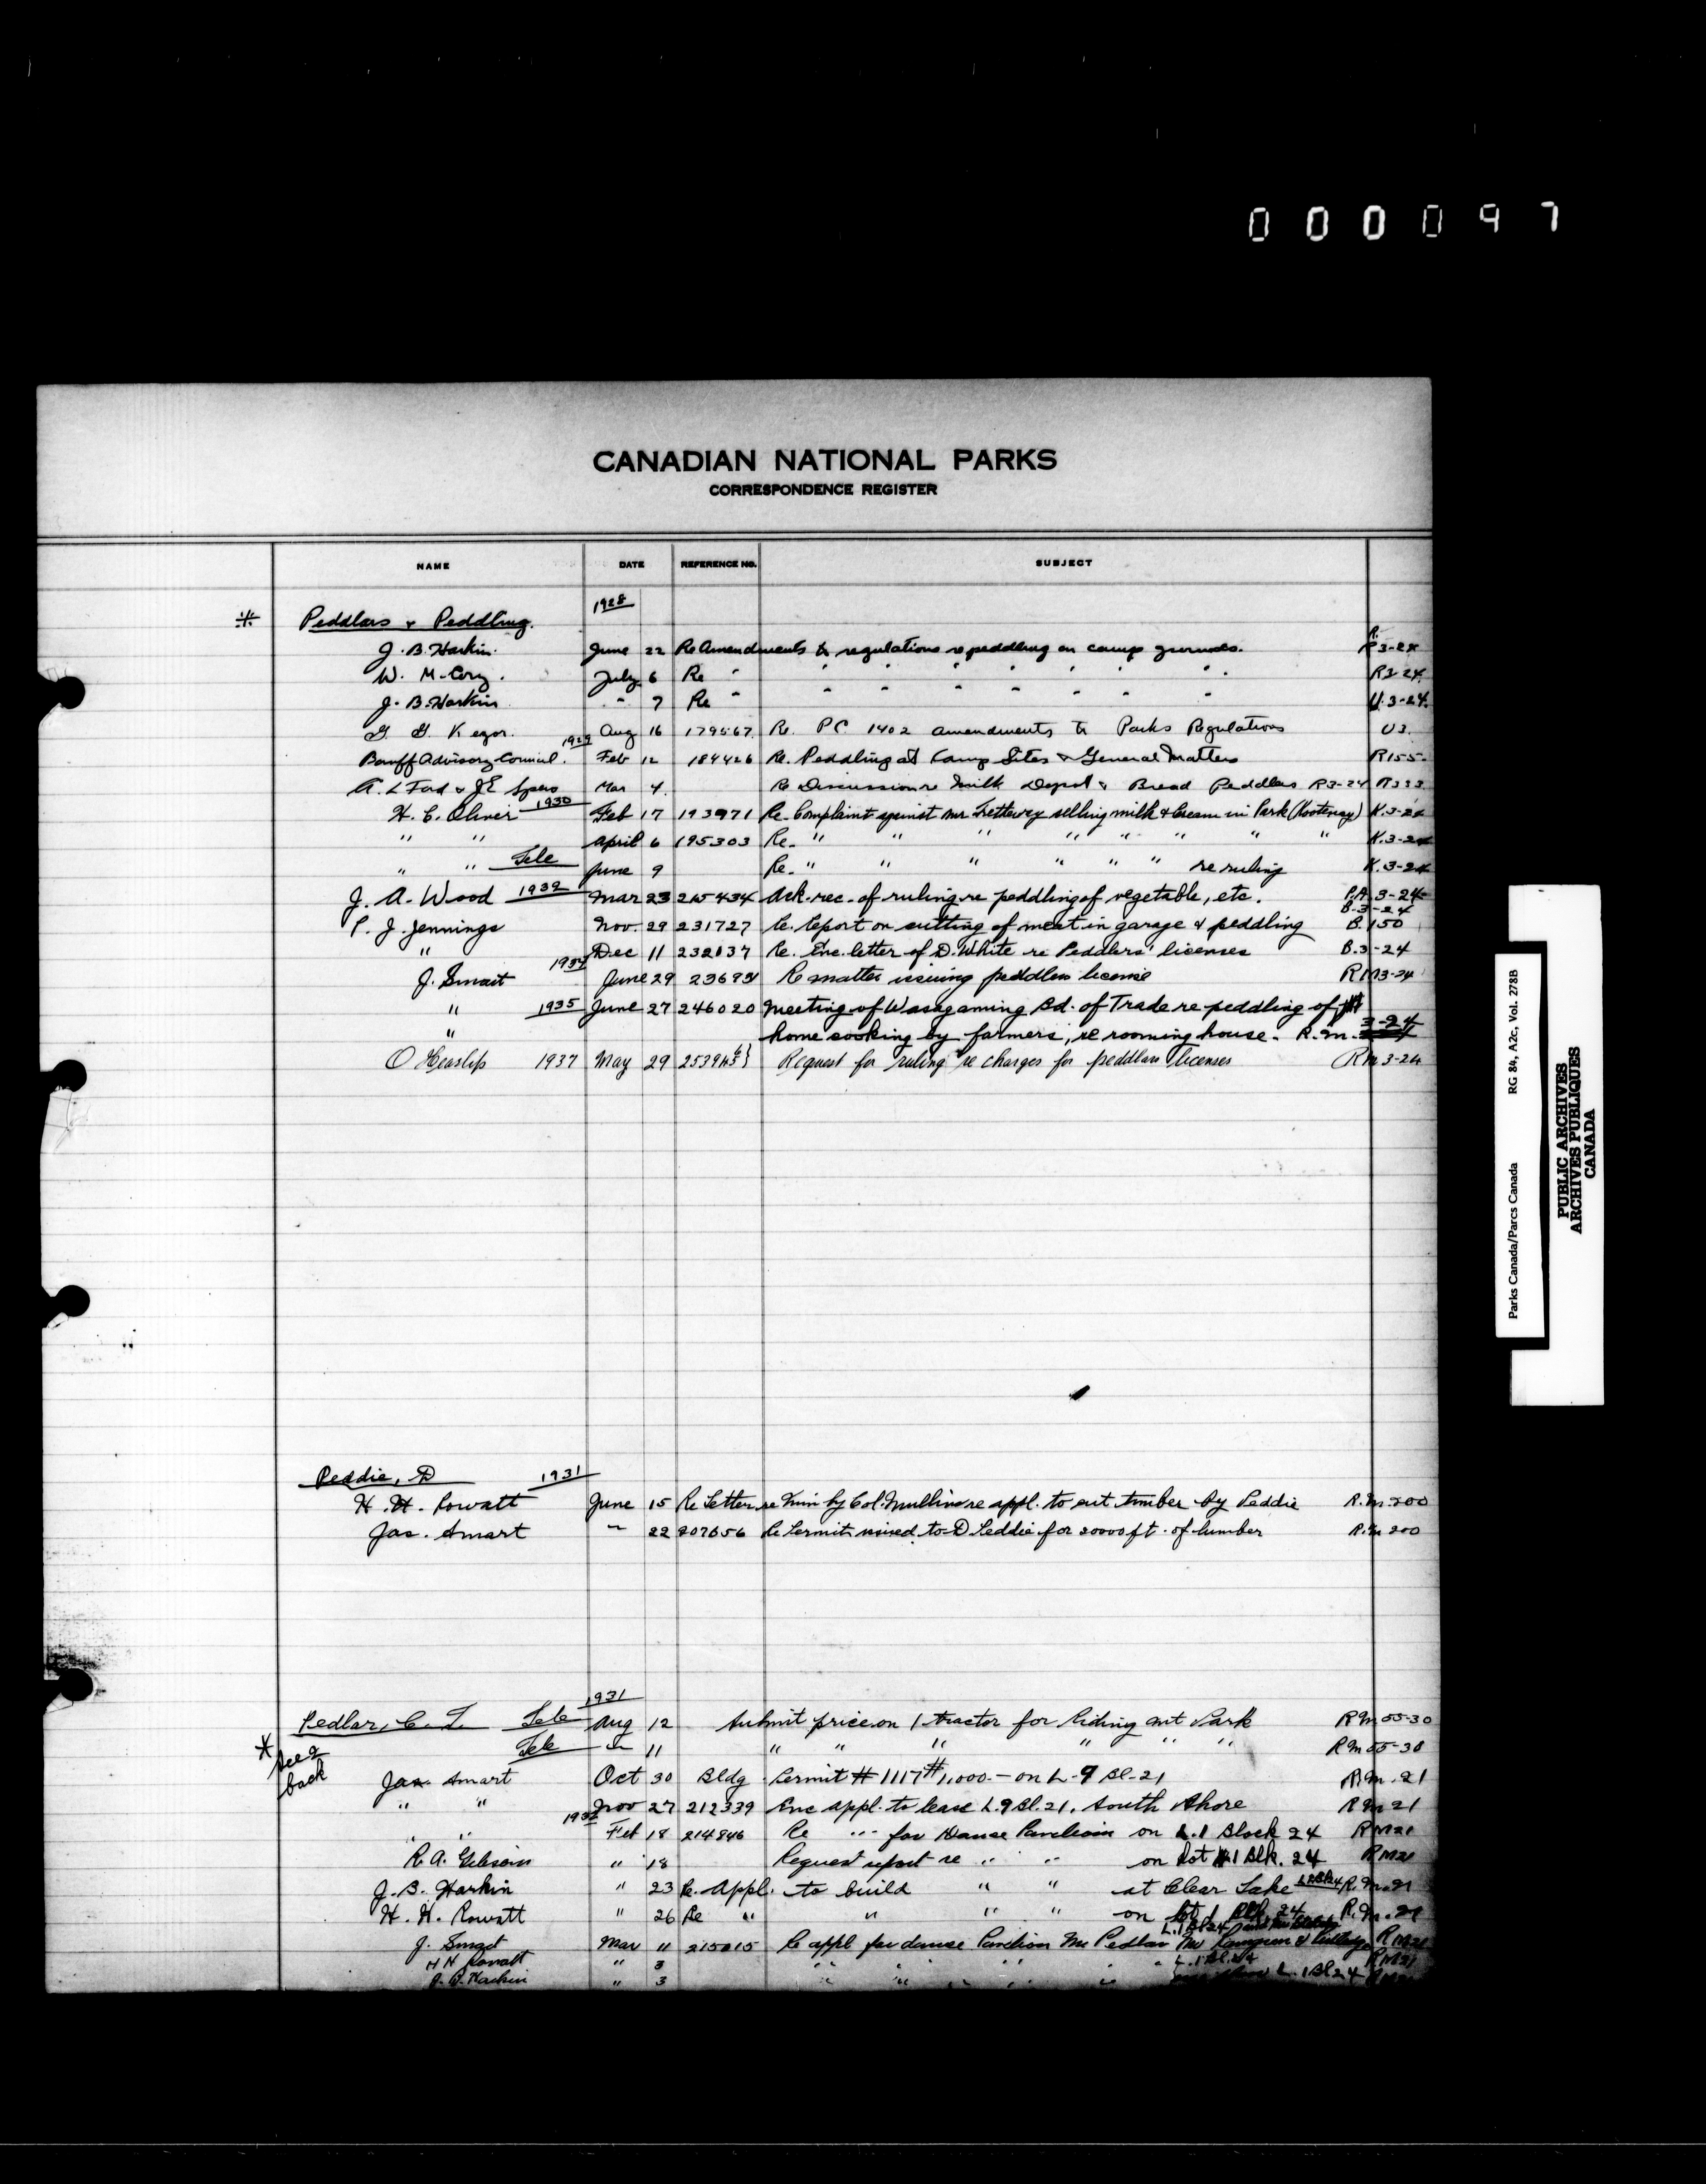 000097
CANADIAN NATIONAL PARKS
CORRESPONDENCE REGISTER
NAME DATE REFERENCE NO. SUBJECT
1928
Peddlars & Peddling.
J. B. Harkin. June 22 Re Amendments to regulations re peddling on camp grounds. R3-24
W. M. Cory. July 6 Re " " " " " " " " R3-24
J. B. Harkin " 7 Re " " " " " " " " U.3-24.
G. G. Aug 16 179567. Re. PC 1402 amendments to Parks Regulations U3.
1929
Banff Advisory Council. Feb 12 184426 Re. Peddling at Camp Sites & General Matters R155
A. L Ford & J E Spero Mar 4. Re Discussion re Milk Depot & Bread Peddlers R3-24
H. C. Oliver 1930 Feb 17 193971 Re- Complaint against Mr Trettewey selling milk & Cream in Park (Kootenay) K.3-24
" " April 6 195303 Re- " " " " " " " " K.3-24
" " Tele June 9 Re- " " " " " " re ruling K.3-24
J. A. Wood 1932 Mar 23 215434 Ack. rec. of ruling re peddling of vegetable, etc. P.A. 3-24
B-3-24
P. J. Jennings Nov. 29 231727 Re. Report on cutting of meat in garage & peddling B.150
" Dec 11 232037 Re. Enc. letter of D. White re Peddlers' licenses B.3-24
J. Smart 1934 June 29 Re matter issuing peddlers license RM3-24
" 1935 June 27 246020 Meeting of Wasagaming Bd. of Trade re peddling of
" home cooking by farmers, re rooming house. R.M. 3-24
O Heaslip 1937 May 29 Request for ruling re charges for peddlars licenses RM 3-24
Peddie, D 1931
H. H. Rowatt June 15 Re Letter re Mem by Col. Mullins re appl. to cut timber by Peddie R.M.200
Jas. Smart " 22 207656 Re Permit issued to D Peddie for 20000 ft. of lumber R.M 200
1931
Pedlar, C. T. Tele Aug 12 Submit price on 1 tractor for Riding Mt Park RM 55-30
Tele " 11 " " " " " " RM 55-30
* See 2 back
Jas. Smart Oct 30 Bldg Permit # 1117 #1,000.- on L-9 Bl-21 R.M.-21
" " Nov 27 212339 Enc appl. to lease L.9 Bl.21. South Shore RM 21
1932
" " Feb 18 214846 Re " for Dance Pavilion on L.1 Block 24 RM21
R. A. Gibson " 18 Request report re " " on Lot #1 Blk. 24 RM21
J. B. Harkin " 23 Re. Appl. to build " " at Clear Lake L1 Bl24 R.M.21
H. H. Rowatt " 26 Re " " " " on Lot 1 Blk. 24 R.M.21
J. Smart Mar 11 215015 Re appl for dance Pavilion Mr Pedlar L.1 Bl 24 RM21
H H Rowatt " 3 " " " " L.1 Bl.24 RM21
J. B. Harkin " 3 " " " " L.1 Bl 24
Parks Canada/Parcs Canada RG 84, A2c, Vol. 278B
PUBLIC ARCHIVES
ARCHIVES PUBLIQUES
CANADA